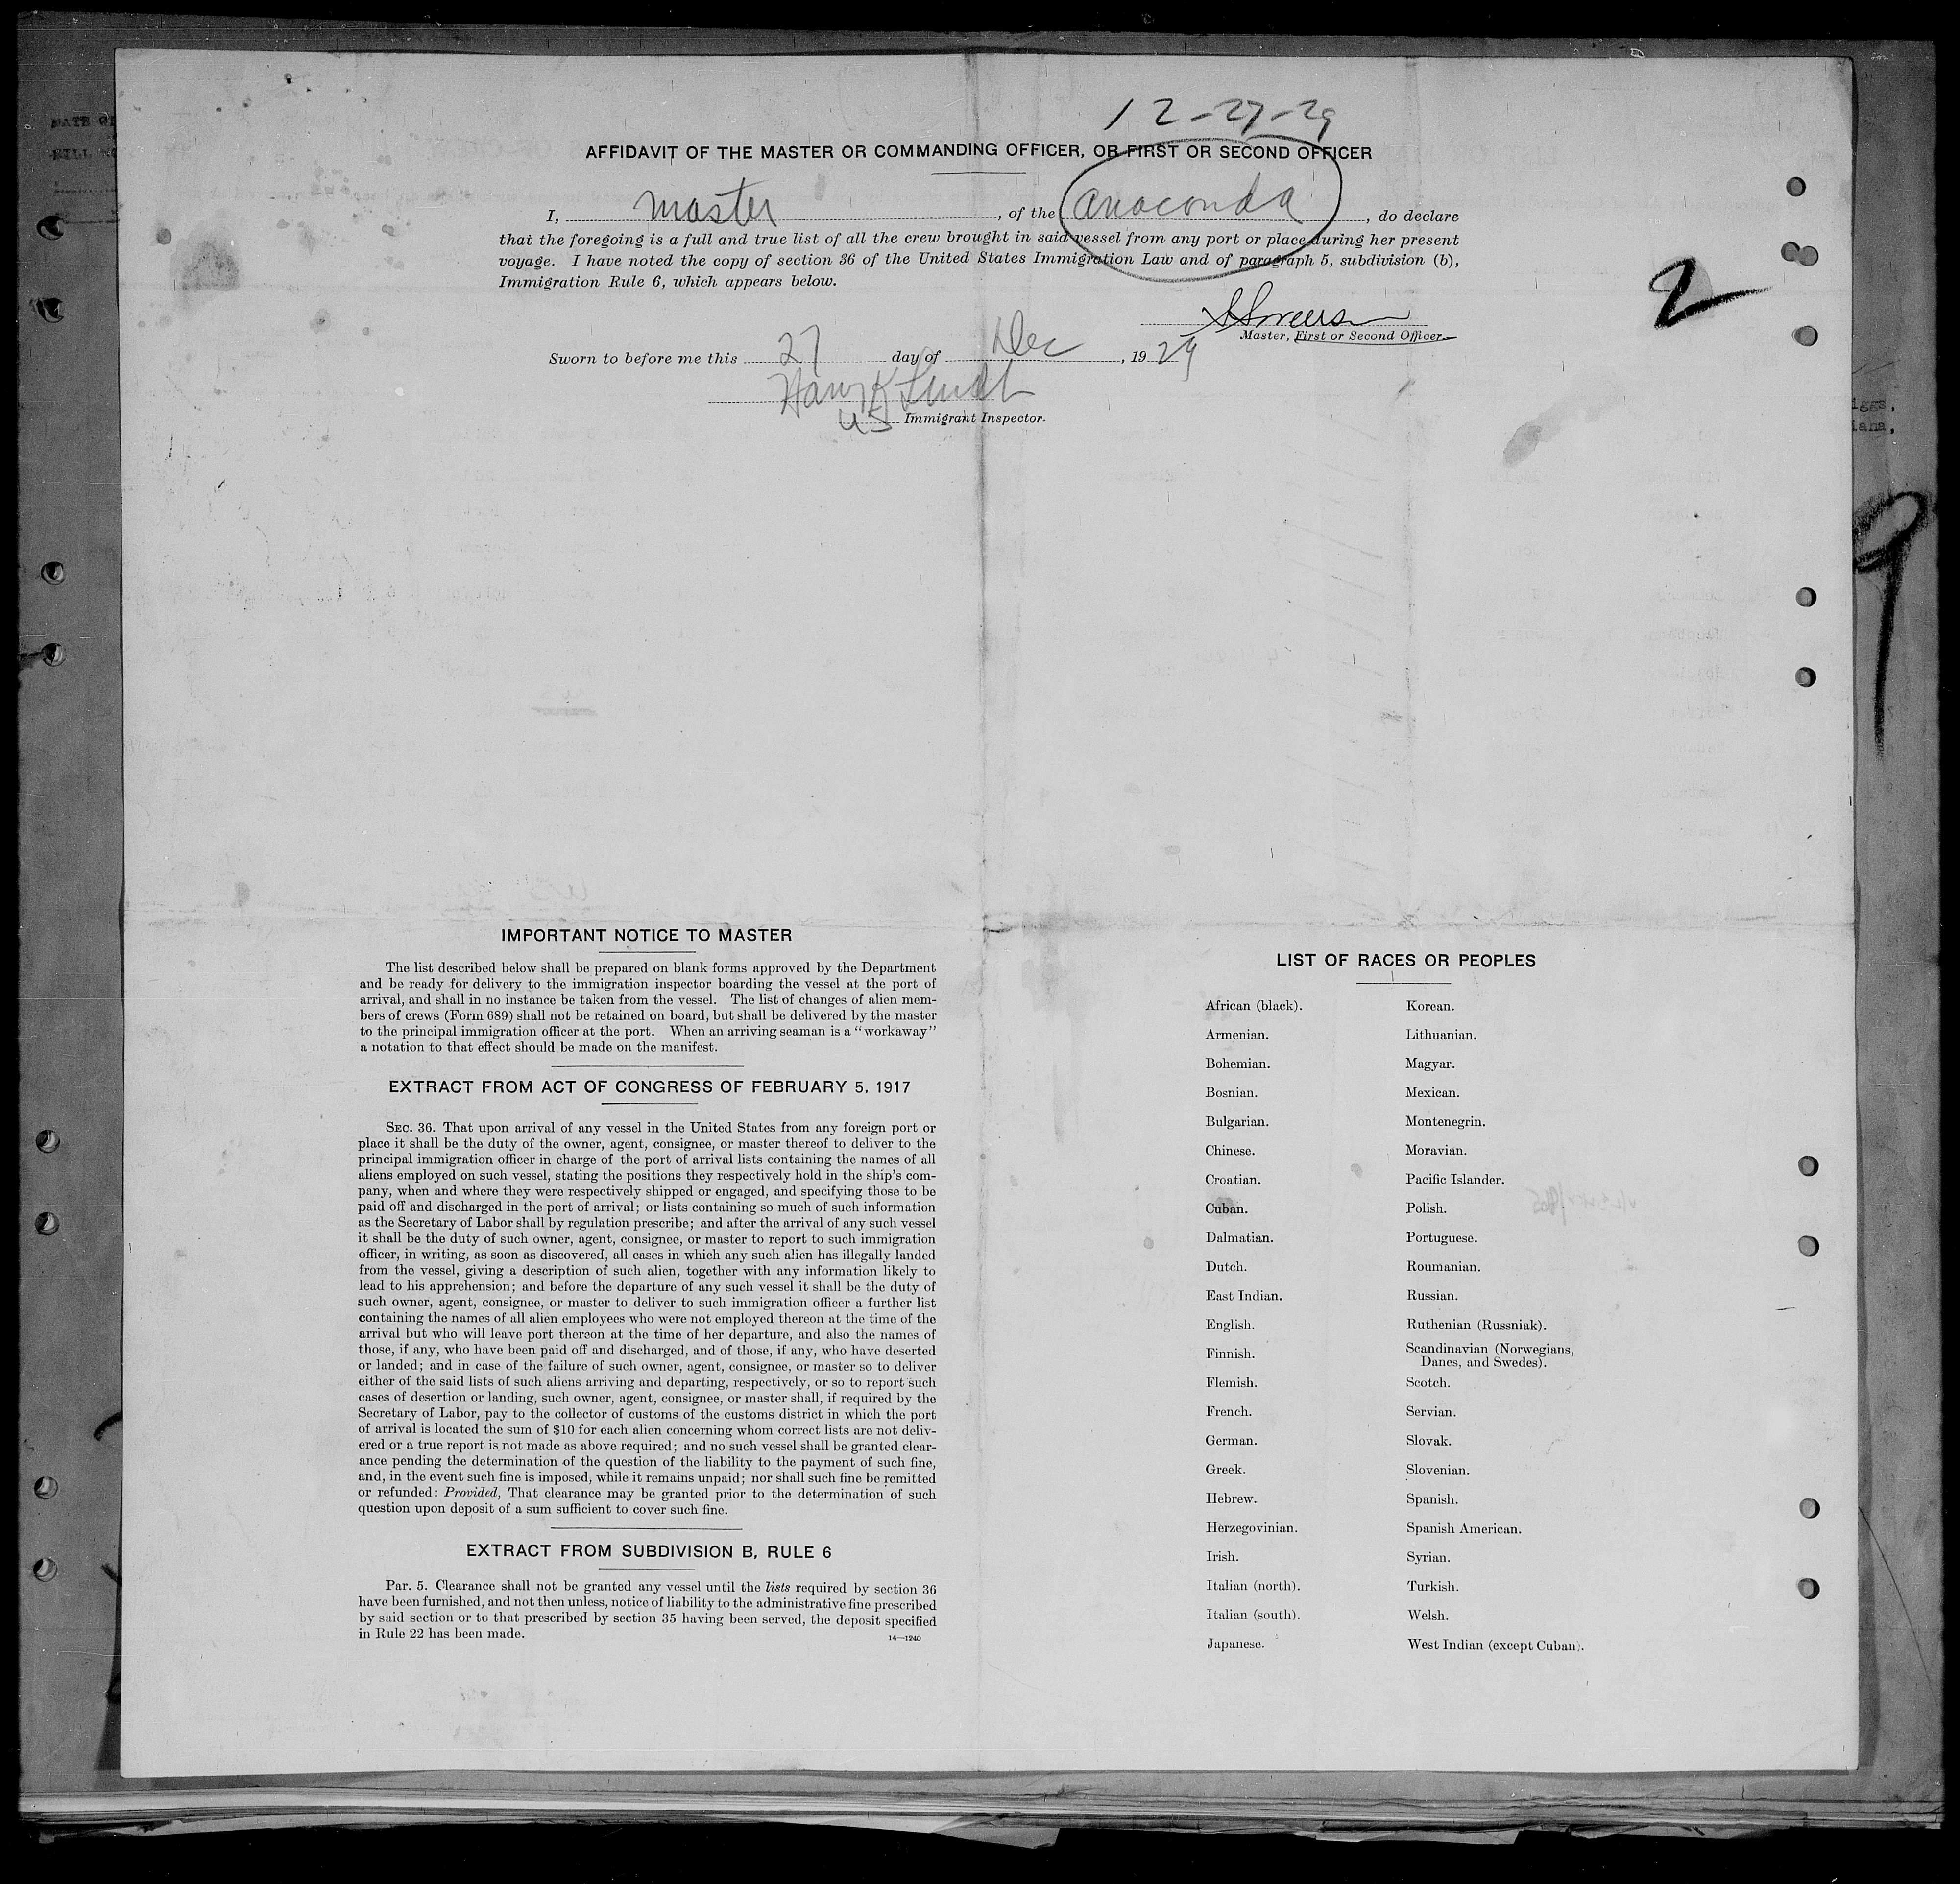 12-27-29
AFFIDAVIT OF THE MASTER OR COMMANDING OFFICER, OR FIRST OR SECOND OFFICER
I, master, of the Anaconda, do declare
that the foregoing is a full and true list of all the crew brought in said vessel from any port or place during her present
voyage. I have noted the copy of section 36 of the United States Immigration Law and of paragraph 5, subdivision (b),
Immigration Rule 6, which appears below.
2
Master, First or Second Officer.
Sworn to before me this 27 day of Dec, 1929
US Immigrant Inspector.
iggs,
iana,
9
IMPORTANT NOTICE TO MASTER
The list described below shall be prepared on blank forms approved by the Department
and be ready for delivery to the immigration inspector boarding the vessel at the port of
arrival, and shall in no instance be taken from the vessel. The list of changes of alien mem-
bers of crews (Form 689) shall not be retained on board, but shall be delivered by the master
to the principal immigration officer at the port. When an arriving seaman is a "workaway"
a notation to that effect should be made on the manifest.
EXTRACT FROM ACT OF CONGRESS OF FEBRUARY 5, 1917
SEC. 36. That upon arrival of any vessel in the United States from any foreign port or
place it shall be the duty of the owner, agent, consignee, or master thereof to deliver to the
principal immigration officer in charge of the port of arrival lists containing the names of all
aliens employed on such vessel, stating the positions they respectively hold in the ship's com-
pany, when and where they were respectively shipped or engaged, and specifying those to be
paid off and discharged in the port of arrival; or lists containing so much of such information
as the Secretary of Labor shall by regulation prescribe; and after the arrival of any such vessel
it shall be the duty of such owner, agent, consignee, or master to report to such immigration
officer, in writing, as soon as discovered, all cases in which any such alien has illegally landed
from the vessel, giving a description of such alien, together with any information likely to
lead to his apprehension; and before the departure of any such vessel it shall be the duty of
such owner, agent, consignee, or master to deliver to such immigration officer a further list
containing the names of all alien employees who were not employed thereon at the time of the
arrival but who will leave port thereon at the time of her departure, and also the names of
those, if any, who have been paid off and discharged, and of those, if any, who have deserted
or landed; and in case of the failure of such owner, agent, consignee, or master so to deliver
either of the said lists of such aliens arriving and departing, respectively, or so to report such
cases of desertion or landing, such owner, agent, consignee, or master shall, if required by the
Secretary of Labor, pay to the collector of customs of the customs district in which the port
of arrival is located the sum of $10 for each alien concerning whom correct lists are not deliv-
ered or a true report is not made as above required; and no such vessel shall be granted clear-
ance pending the determination of the question of the liability to the payment of such fine,
and, in the event such fine is imposed, while it remains unpaid; nor shall such fine be remitted
or refunded: Provided, That clearance may be granted prior to the determination of such
question upon deposit of a sum sufficient to cover such fine.
EXTRACT FROM SUBDIVISION B, RULE 6
Par. 5. Clearance shall not be granted any vessel until the lists required by section 36
have been furnished, and not then unless, notice of liability to the administrative fine prescribed
by said section or to that prescribed by section 35 having been served, the deposit specified
in Rule 22 has been made.
14—1240
LIST OF RACES OR PEOPLES
African (black). Korean.
Armenian. Lithuanian.
Bohemian. Magyar.
Bosnian. Mexican.
Bulgarian. Montenegrin.
Chinese. Moravian.
Croatian. Pacific Islander.
Cuban. Polish.
Dalmatian. Portuguese.
Dutch. Roumanian.
East Indian. Russian.
English. Ruthenian (Russniak).
Finnish. Scandinavian (Norwegians,
Danes, and Swedes).
Flemish. Scotch.
French. Servian.
German. Slovak.
Greek. Slovenian.
Hebrew. Spanish.
Herzegovinian. Spanish American.
Irish. Syrian.
Italian (north). Turkish.
Italian (south). Welsh.
Japanese. West Indian (except Cuban).